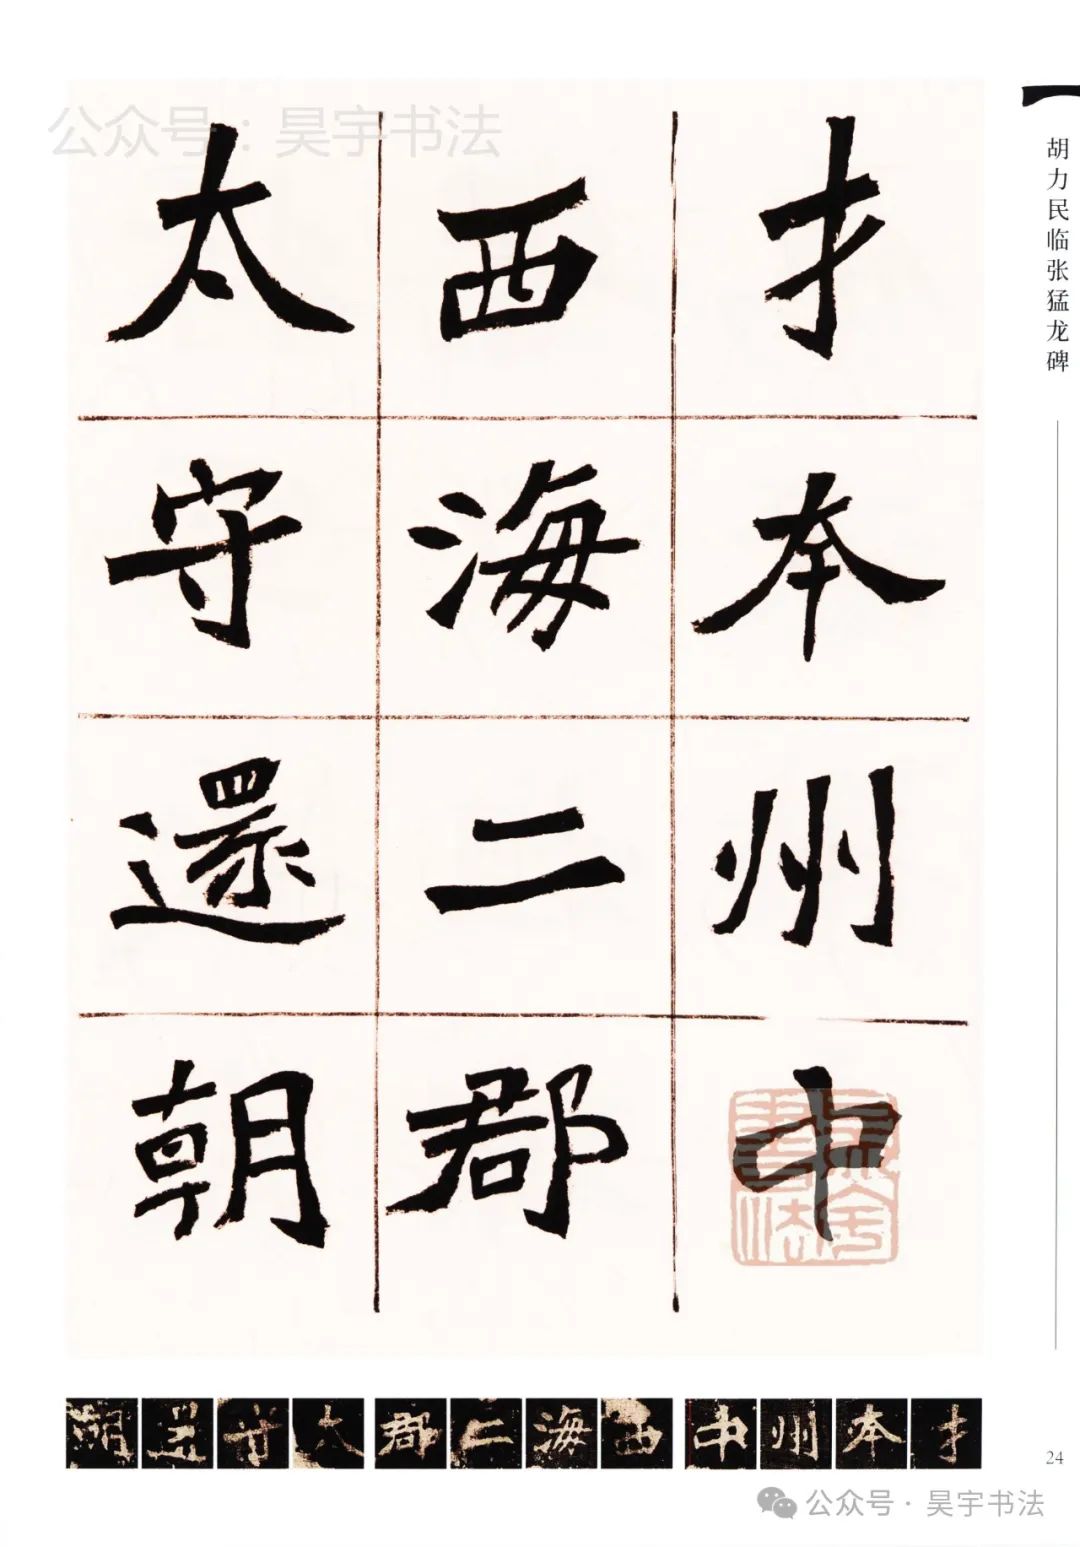 公众号：昊宇书法
胡力民临张猛龙碑
才本州中
西海二郡
太守還朝
才本州中西海二郡太守還朝
24
公众号·昊宇书法